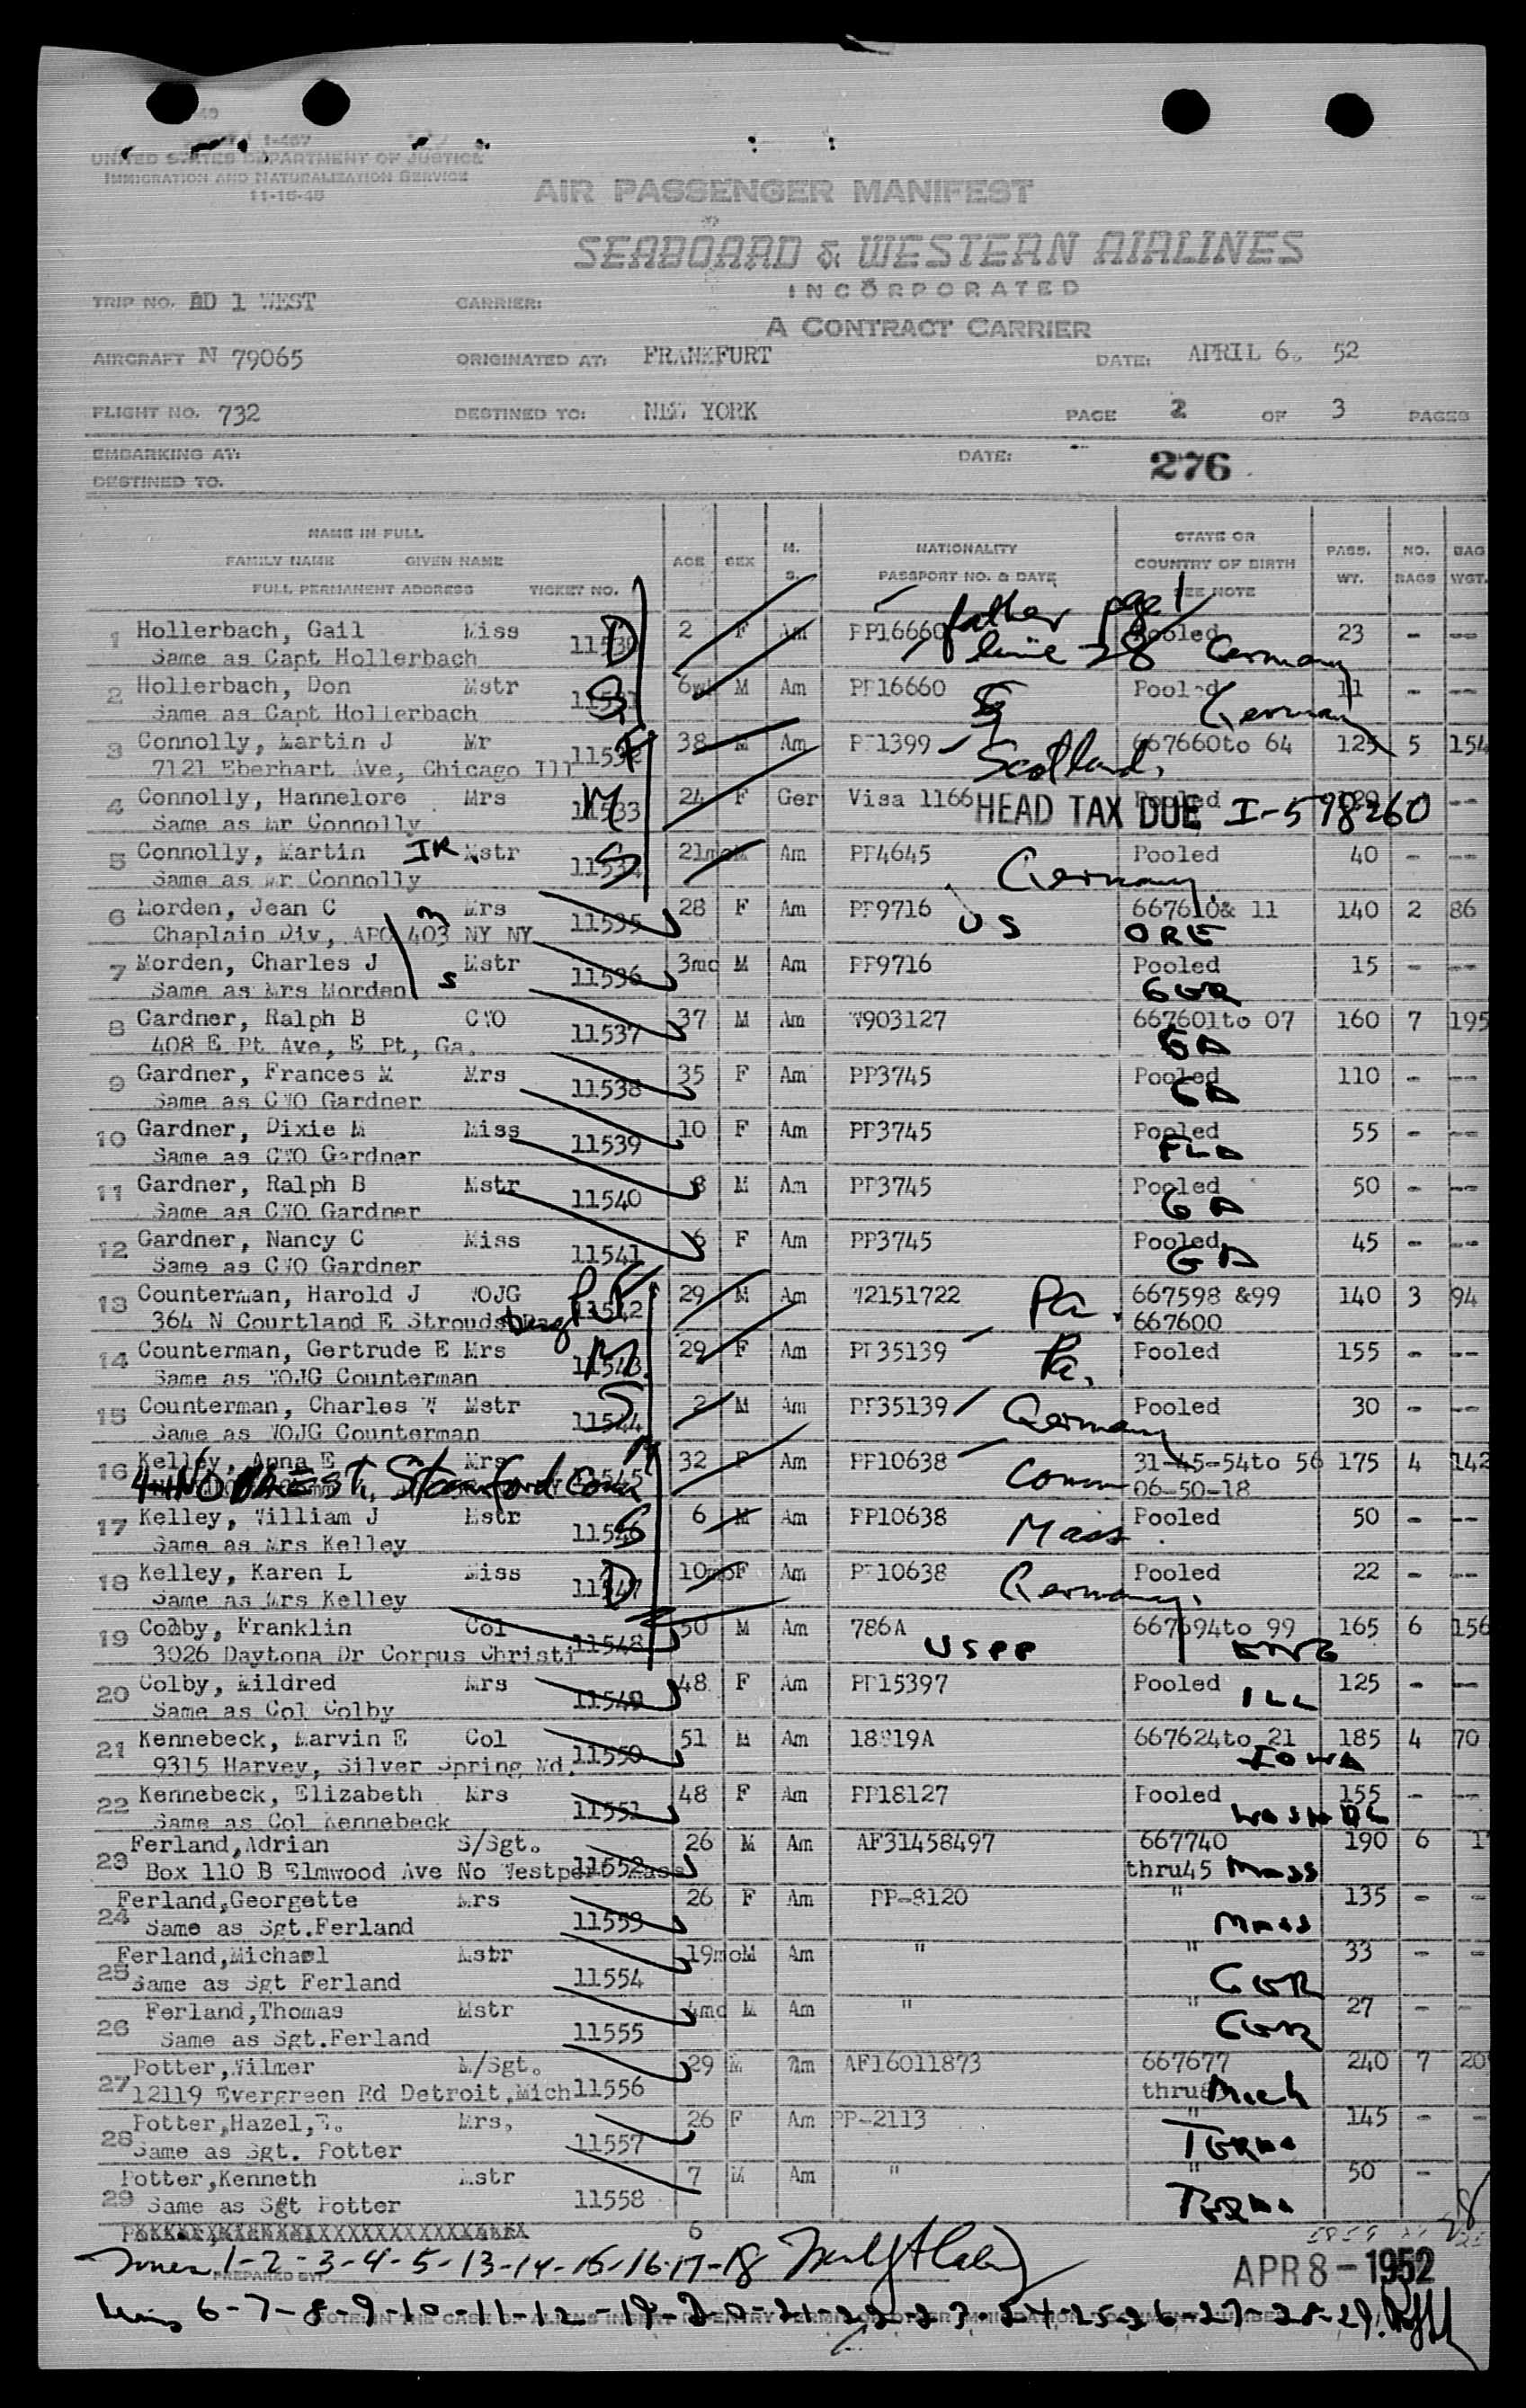 49
1-467
UNITED STATES DEPARTMENT OF JUSTICE
IMMIGRATION AND NATURALIZATION SERVICE
11-15-48
AIR PASSENGER MANIFEST
SEABOARD & WESTERN AIRLINES
INCORPORATED
A CONTRACT CARRIER
TRIP NO. BD 1 WEST CARRIER:
AIRCRAFT N 79065 ORIGINATED AT: FRANKFURT DATE: APRIL 6. 52
FLIGHT NO. 732 DESTINED TO: NEW YORK PAGE 2 OF 3 PAGES
EMBARKING AT: DATE: 276
DESTINED TO.
NAME IN FULL
FAMILY NAME GIVEN NAME AGE SEX M. S. NATIONALITY STATE OR PASS. NO. BAG
FULL PERMANENT ADDRESS TICKET NO. PASSPORT NO. & DATE COUNTRY OF BIRTH WT. BAGS WGT.
SEE NOTE
father page 1
1 Hollerbach, Gail Miss 11530 D 2 F Am PP16660 Pooled 23 - --
Same as Capt Hollerbach line 28 Germany
2 Hollerbach, Don Mstr 11531 S 6wk M Am PP16660 Pooled 11 - --
Same as Capt Hollerbach Germany
3 Connolly, Martin J Mr 11532 F 38 M Am PP1399 667660to 64 125 5 154
7121 Eberhart Ave, Chicago Ill Scotland.
4 Connolly, Hannelore Mrs 11533 M 24 F Ger Visa 1166 Pooled 120 --
Same as Mr Connolly HEAD TAX DUE I-598260
5 Connolly, Martin JR. Mstr 11534 S 21mo M Am PP4645 Pooled 40 - --
Same as Mr Connolly Germany
6 Morden, Jean C Mrs 11535 28 F Am PP9716 667610& 11 140 2 86
Chaplain Div, APO 403 NY NY M US ORE
7 Morden, Charles J Mstr 11536 3mo M Am PP9716 Pooled 15 - --
Same as Mrs Morden S GER
8 Gardner, Ralph B CWO 11537 37 M Am W903127 667601to 07 160 7 195
408 E Pt Ave, E Pt, Ga. GA
9 Gardner, Frances M Mrs 11538 35 F Am PP3745 Pooled 110 - --
Same as CWO Gardner GA
10 Gardner, Dixie M Miss 11539 10 F Am PP3745 Pooled 55 - --
Same as CWO Gardner FLA
11 Gardner, Ralph B Mstr 11540 8 M Am PP3745 Pooled 50 - --
Same as CWO Gardner GA
12 Gardner, Nancy C Miss 11541 6 F Am PP3745 Pooled 45 - --
Same as CWO Gardner GA
13 Counterman, Harold J WOJG 11542 F 29 M Am W2151722 Pa. 667598 &99 140 3 94
364 N Courtland E Stroudsburg Pa 667600
14 Counterman, Gertrude E Mrs 11543 M 29 F Am PP35139 Pa. Pooled 155 - --
Same as WOJG Counterman
15 Counterman, Charles W Mstr 11544 S 2 M Am PP35139 Germany Pooled 30 - --
Same as WOJG Counterman
16 Kelley, Anna E Mrs 11545 M 32 F Am PP10638 Conn 31-45-54to 56 175 4 142
Stamford Conn 06-50-18
17 Kelley, William J Mstr 11546 S 6 M Am PP10638 Mass Pooled 50 - --
Same as Mrs Kelley
18 Kelley, Karen L Miss 11547 D 10mo F Am PP10638 Germany. Pooled 22 - --
Same as Mrs Kelley
19 Colby, Franklin Col 11548 50 M Am 786A 667694to 99 165 6 156
3026 Daytona Dr Corpus Christi USPP ENG
20 Colby, Mildred Mrs 11549 48 F Am PP15397 Pooled 125 - --
Same as Col Colby ILL
21 Kennebeck, Marvin E Col 11550 51 M Am 18819A 667624to 21 185 4 70
9315 Harvey, Silver Spring Md. IOWA
22 Kennebeck, Elizabeth Mrs 11551 48 F Am PP18127 Pooled 155 - --
Same as Col Kennebeck WASH DC
23 Ferland,Adrian S/Sgt. 11552 26 M Am AF31458497 667740 190 6
Box 110 B Elmwood Ave No Westport Mass thru45 Mass
24 Ferland,Georgette Mrs 11553 26 F Am PP-8120 " 135 - -
Same as Sgt.Ferland Mass
25 Ferland,Michael Mstr 11554 19mo M Am " " 33 - -
Same as Sgt Ferland GER
26 Ferland,Thomas Mstr 11555 4mo M Am " " 27 - -
Same as Sgt.Ferland GER
27 Potter,Wilmer M/Sgt. 11556 29 M Am AF16011873 667677 240 7 20
12119 Evergreen Rd Detroit,Mich thru Mich
28 Potter,Hazel,E. Mrs, 11557 26 F Am PP-2113 " 145 - -
Same as Sgt. Potter TEXAS
29 Potter,Kenneth Mstr 11558 7 M Am " " 50 -
Same as Sgt Potter TEXAS
6
28
Jones 1-2-3-4-5-13-14-15-16-17-18
PREPARED BY:
APR 8-1952
6-7-8-9-10-11-12-19-20-21-22-23-24-25-26-27-28-29.